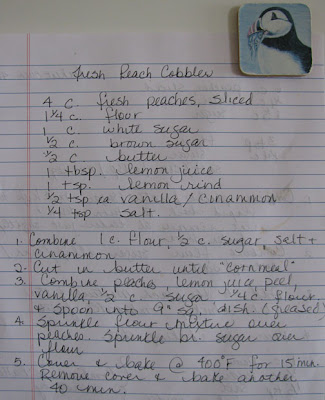 Fresh Peach Cobbler
4 c. fresh peaches, sliced
1 1/4 c. flour
1 c white sugar
1/2 c. brown sugar
1/2 c butter
1 tbsp. lemon juice
1 tsp. lemon rind
1/2 tsp ea vanilla / cinammon
1/4 tsp salt.
1. Combine 1 c. flour, 1/2 c. sugar, salt +
cinammon
2. Cut in butter until "cornmeal"
3. Combine peaches, lemon juice, peel,
vanilla, 1/2 c. suga 1/4 c. flour,
& spoon into 9" sq. dish. (greased)
4. Sprinkle flour mixture over
peaches. Sprinkle br. sugar over
flour
5. Cover & bake @ 400°F for 15 min.
Remove cover & bake another
40 min.